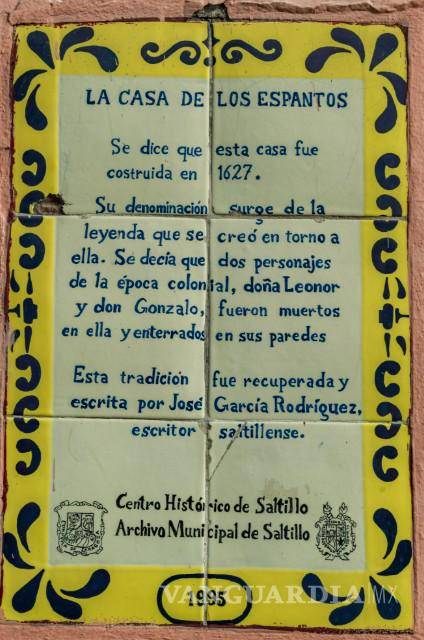 LA CASA DE LOS ESPANTOS
Se dice que esta casa fue
costruida en 1627.
Su denominación surge de la
leyenda que se creó en torno a
ella. Se decía que dos personajes
de la época colonial, doña Leonor
y don Gonzalo, fueron muertos
en ella y enterrados en sus paredes
Esta tradición fue recuperada y
escrita por José García Rodríguez,
escritor saltillense.
Centro Histórico de Saltillo
Archivo Municipal de Saltillo
1995
VANGUARDIA MX